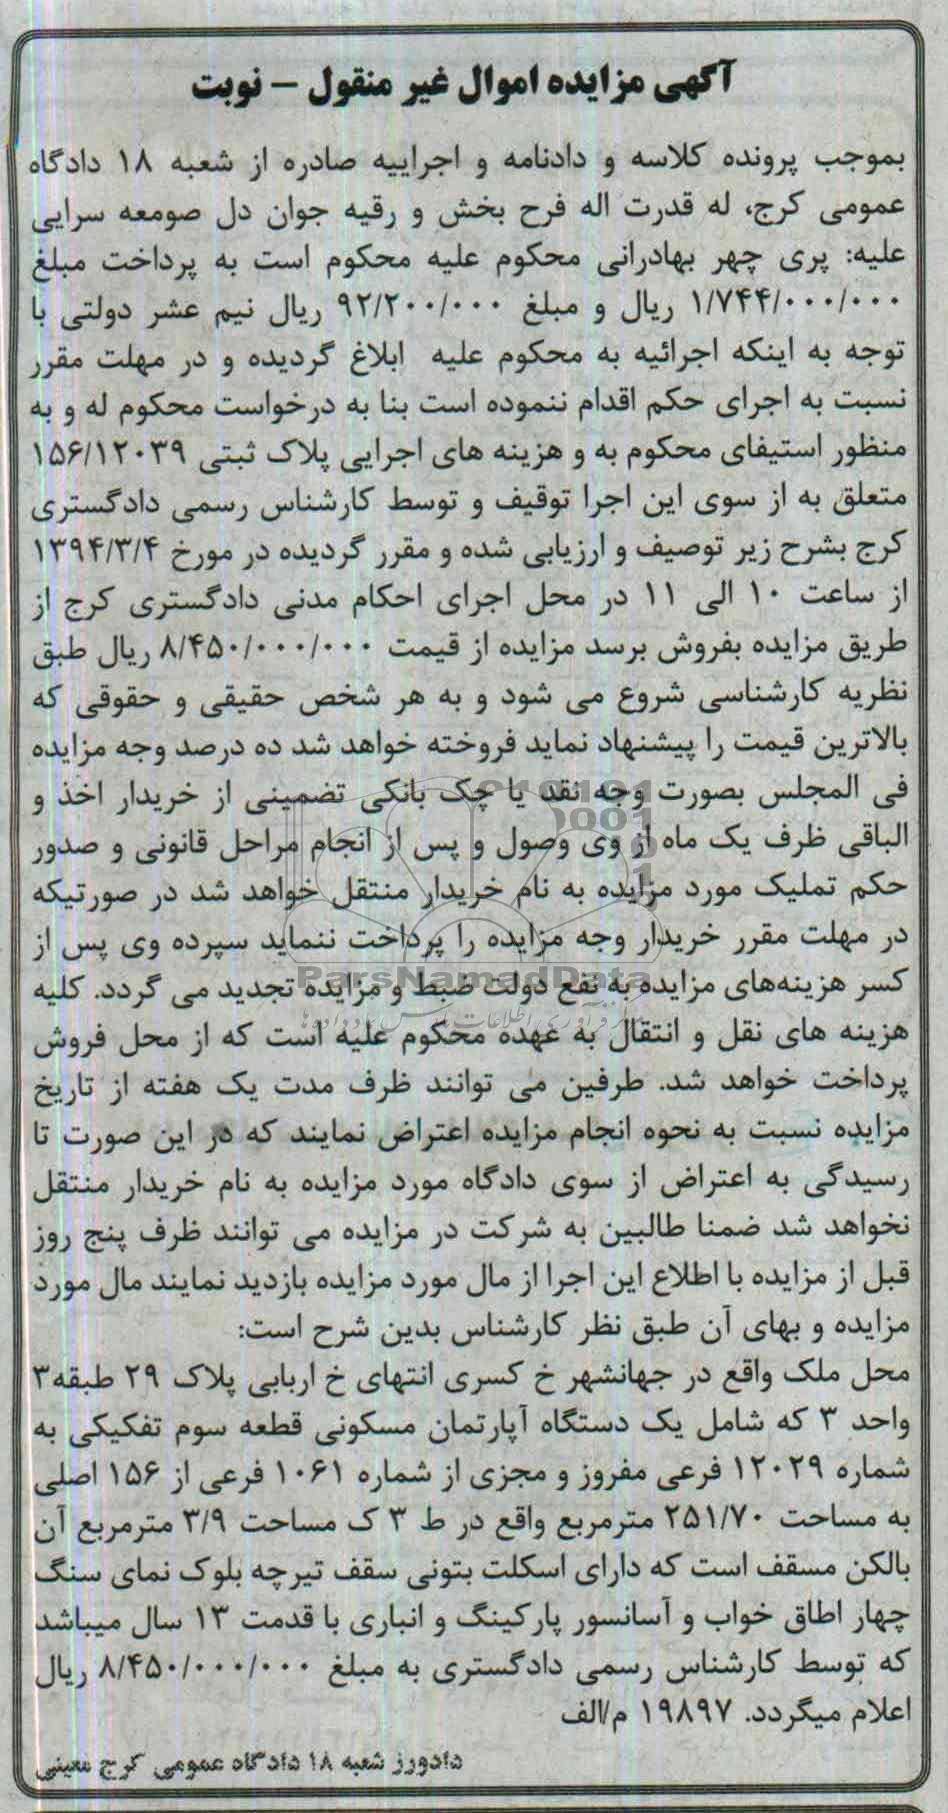 آگهی مزایده اموال غیر منقول – نوبت
بموجب پرونده کلاسه و دادنامه و اجراییه صادره از شعبه ۱۸ دادگاه
عمومی کرج، له قدرت اله فرح بخش و رقیه جوان دل صومعه سرایی
علیه: پری چهر بهادرانی محکوم علیه محکوم است به پرداخت مبلغ
۱/۷۴۴/۰۰۰/۰۰۰ ریال و مبلغ ۹۲/۲۰۰/۰۰۰ ریال نیم عشر دولتی با
توجه به اینکه اجرائیه به محکوم علیه ابلاغ گردیده و در مهلت مقرر
نسبت به اجرای حکم اقدام ننموده است بنا به درخواست محکوم له و به
منظور استیفای محکوم به و هزینه های اجرایی پلاک ثبتی ۱۵۶/۱۲۰۳۹
متعلق به از سوی این اجرا توقیف و توسط کارشناس رسمی دادگستری
کرج بشرح زیر توصیف و ارزیابی شده و مقرر گردیده در مورخ ۱۳۹۴/۳/۴
از ساعت ۱۰ الی ۱۱ در محل اجرای احکام مدنی دادگستری کرج از
طریق مزایده بفروش برسد مزایده از قیمت ۸/۴۵۰/۰۰۰/۰۰۰ ریال طبق
نظریه کارشناسی شروع می شود و به هر شخص حقیقی و حقوقی که
بالاترین قیمت را پیشنهاد نماید فروخته خواهد شد ده درصد وجه مزایده
فی المجلس بصورت وجه نقد یا چک بانکی تضمینی از خریدار اخذ و
الباقی ظرف یک ماه از وی وصول و پس از انجام مراحل قانونی و صدور
حکم تملیک مورد مزایده به نام خریدار منتقل خواهد شد در صورتیکه
در مهلت مقرر خریدار وجه مزایده را پرداخت ننماید سپرده وی پس از
ParsNamadData
کسر هزینه‌های مزایده به نفع دولت ضبط و مزایده تجدید می گردد. کلیه
هزینه های نقل و انتقال به عهده محکوم علیه است که از محل فروش
پرداخت خواهد شد. طرفین می توانند ظرف مدت یک هفته از تاریخ
مزایده نسبت به نحوه انجام مزایده اعتراض نمایند که در این صورت تا
رسیدگی به اعتراض از سوی دادگاه مورد مزایده به نام خریدار منتقل
نخواهد شد ضمنا طالبین به شرکت در مزایده می توانند ظرف پنج روز
قبل از مزایده با اطلاع این اجرا از مال مورد مزایده بازدید نمایند مال مورد
مزایده و بهای آن طبق نظر کارشناس بدین شرح است:
محل ملک واقع در جهانشهر خ کسری انتهای خ اربابی پلاک ۲۹ طبقه۳
واحد ۳ که شامل یک دستگاه آپارتمان مسکونی قطعه سوم تفکیکی به
شماره ۱۲۰۲۹ فرعی مفروز و مجزی از شماره ۱۰۶۱ فرعی از ۱۵۶ اصلی
به مساحت ۲۵۱/۷۰ مترمربع واقع در ط ۳ ک مساحت ۳/۹ مترمربع آن
بالکن مسقف است که دارای اسکلت بتونی سقف تیرچه بلوک نمای سنگ
چهار اطاق خواب و آسانسور پارکینگ و انباری با قدمت ۱۳ سال میباشد
که توسط کارشناس رسمی دادگستری به مبلغ ۸/۴۵۰/۰۰۰/۰۰۰ ریال
اعلام میگردد. ۱۹۸۹۷ م/الف
دادورز شعبه ۱۸ دادگاه عمومی کرج معینی